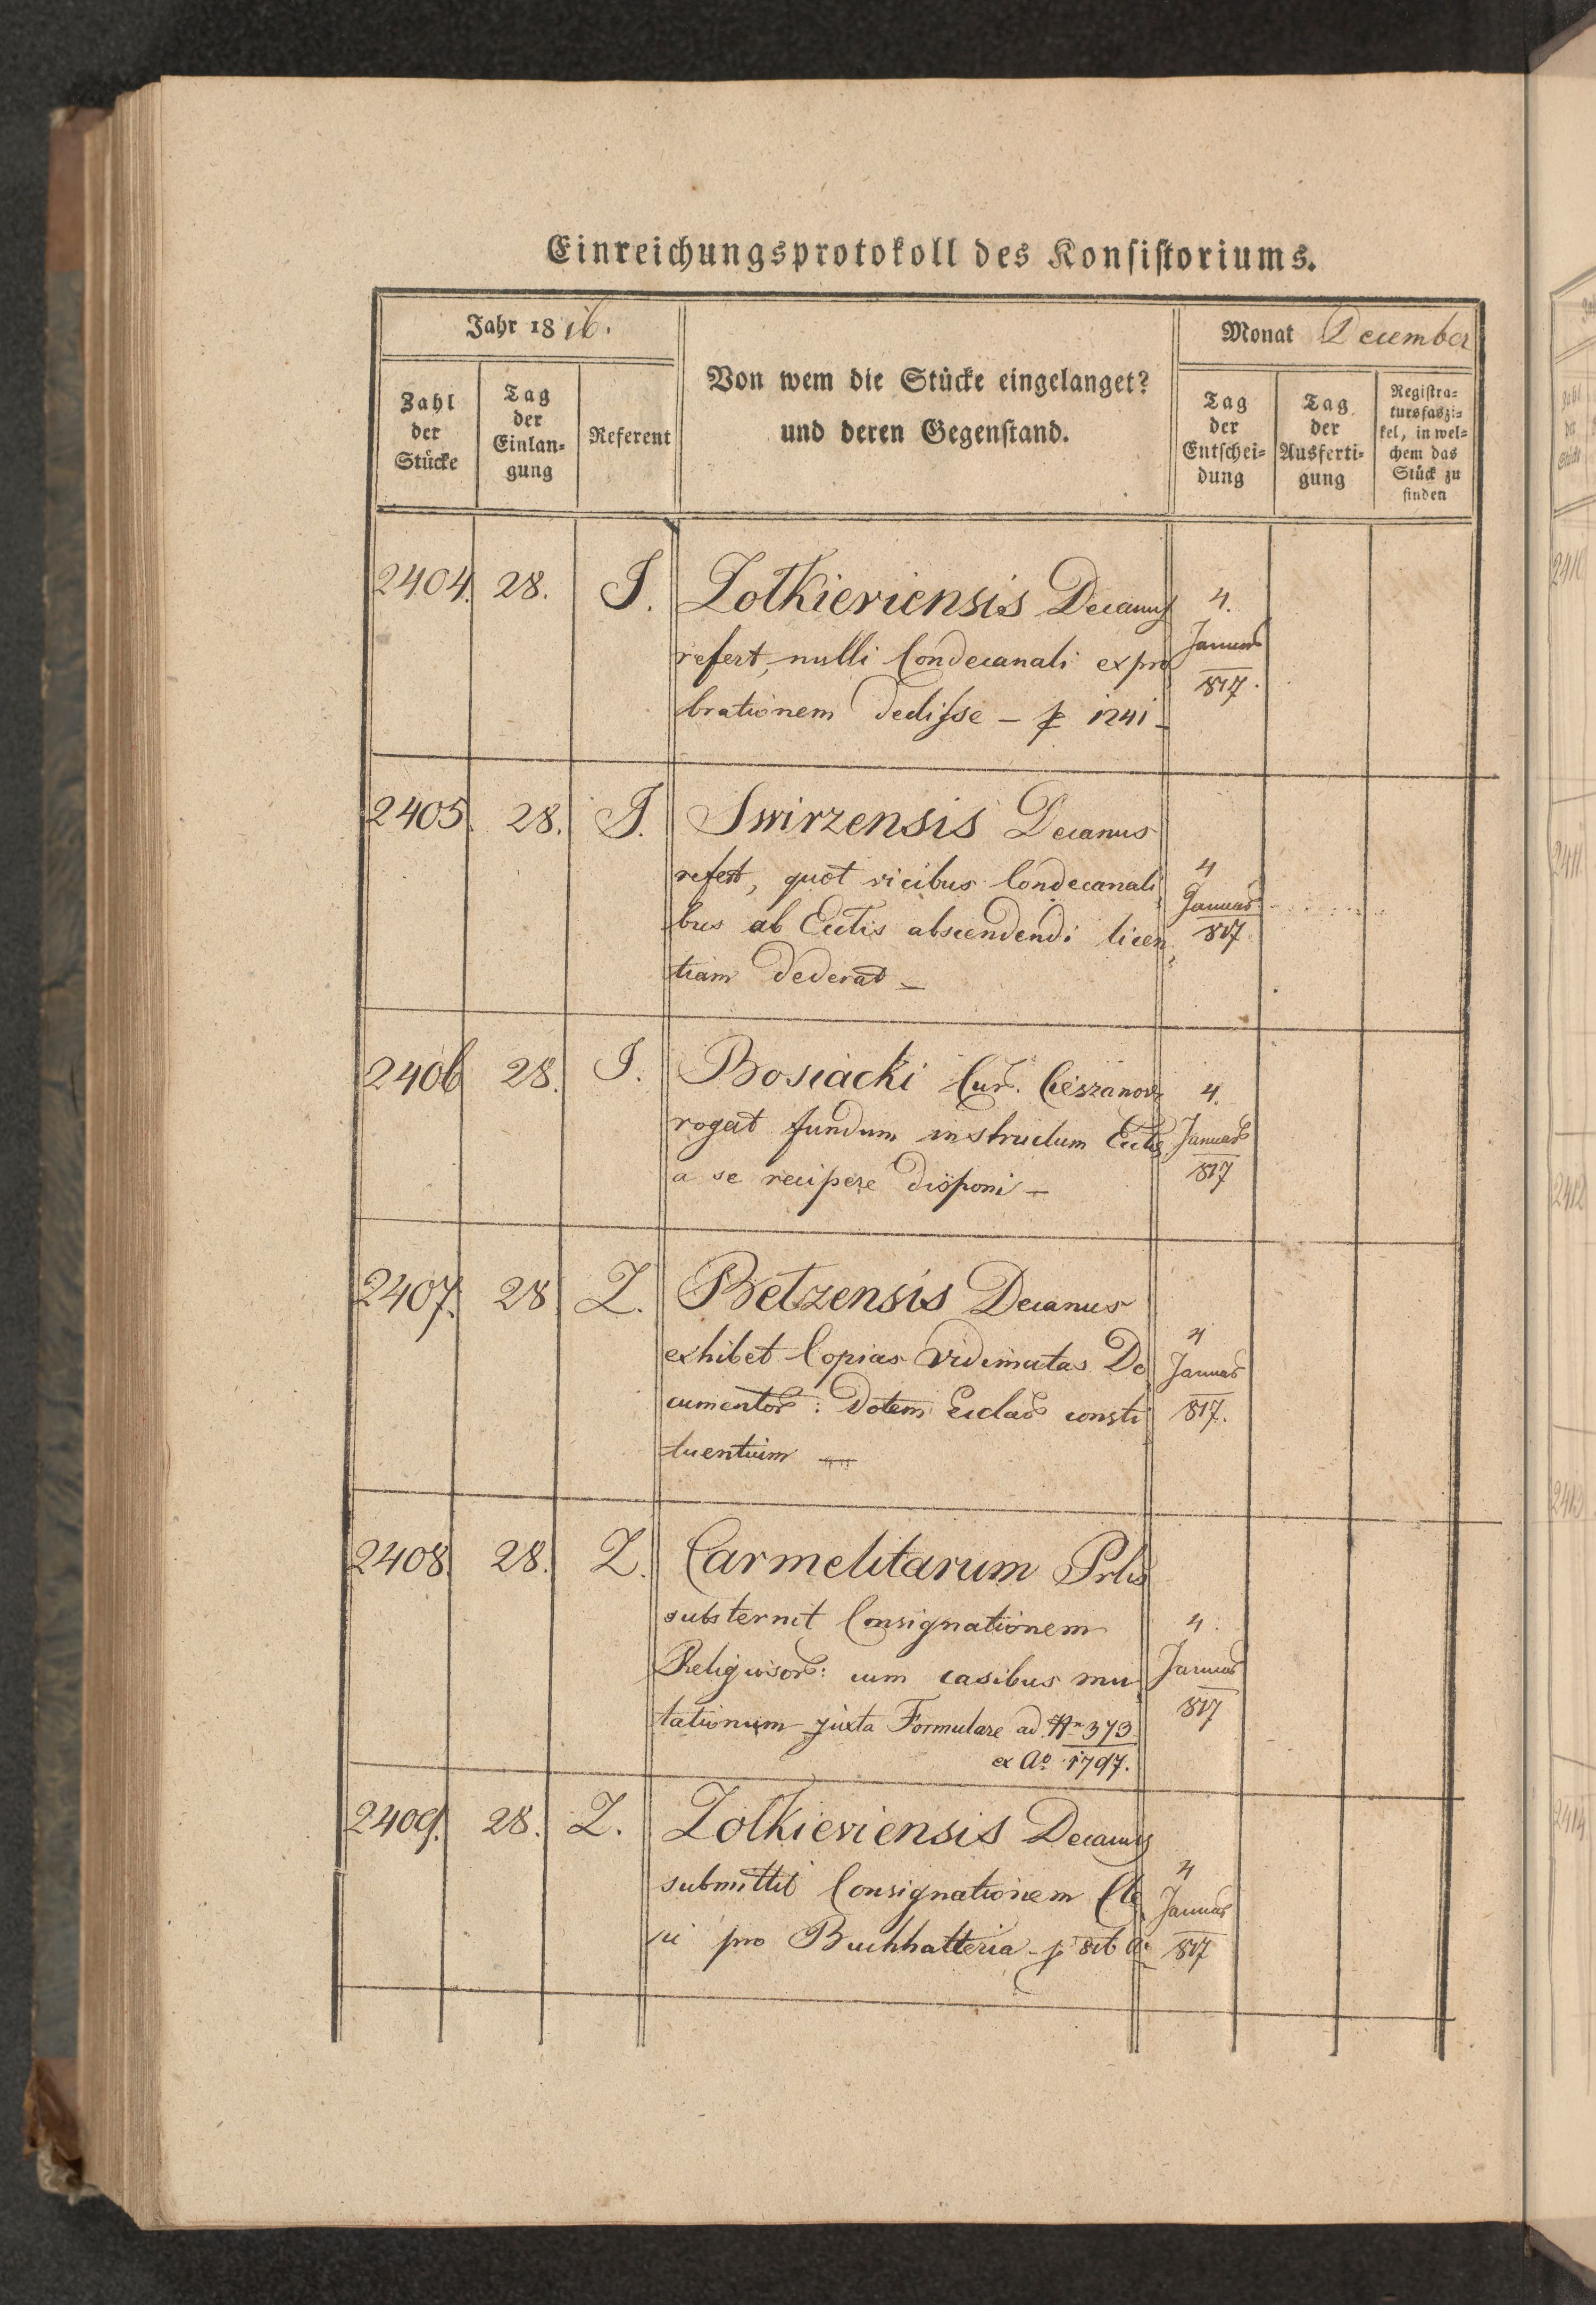 Einreichungsprotokoll des Konsistoriums.
Jahr 1816.
Monat December
Zahl der Stücke
Tag der Einlan-gung
Referent
Von wem die Stücke eingelanget?
und deren Gegenstand.
Tag der Entschei-dung
Tag der Ausferti-gung
Registra-tursfaszi-kel, in wel-chem das Stück zu finden
2404. 28. J. Zolkieviensis Decanus
refert, nulli Condecanali expro
brationem dedisse – p 1241 –
4.
Januar
817.
2405. 28. J. Swirzensis Decanus
refert, quot vicibus Condecanali
bus ab Ecclis abscendendi licen
tiam dederat –
4
Januar
817
2406 28. J. Bosiacki Cur. Cieszanov
rogat fundum instructum Eccle
a se recipere disponi –
4.
Januar
817
2407. 28 Z. Betzensis Decanus
exhibet Copias vidimatas Do
cumentor: Dotem Ecclar consti
tuentium –
4
Januar
817.
2408. 28. Z. Carmelitarum Prlis
substernit Consignationem
Religiosor: cum casibus mu
tationum juxta Formulare ad Nr 373
ex Ao 1797.
4.
Januar
817
2409. 28. Z. Zolkieviensis Decanus
submittit Consignationem Cle
ri pro Buchhalteria – p 816 A.
4
Januar
817